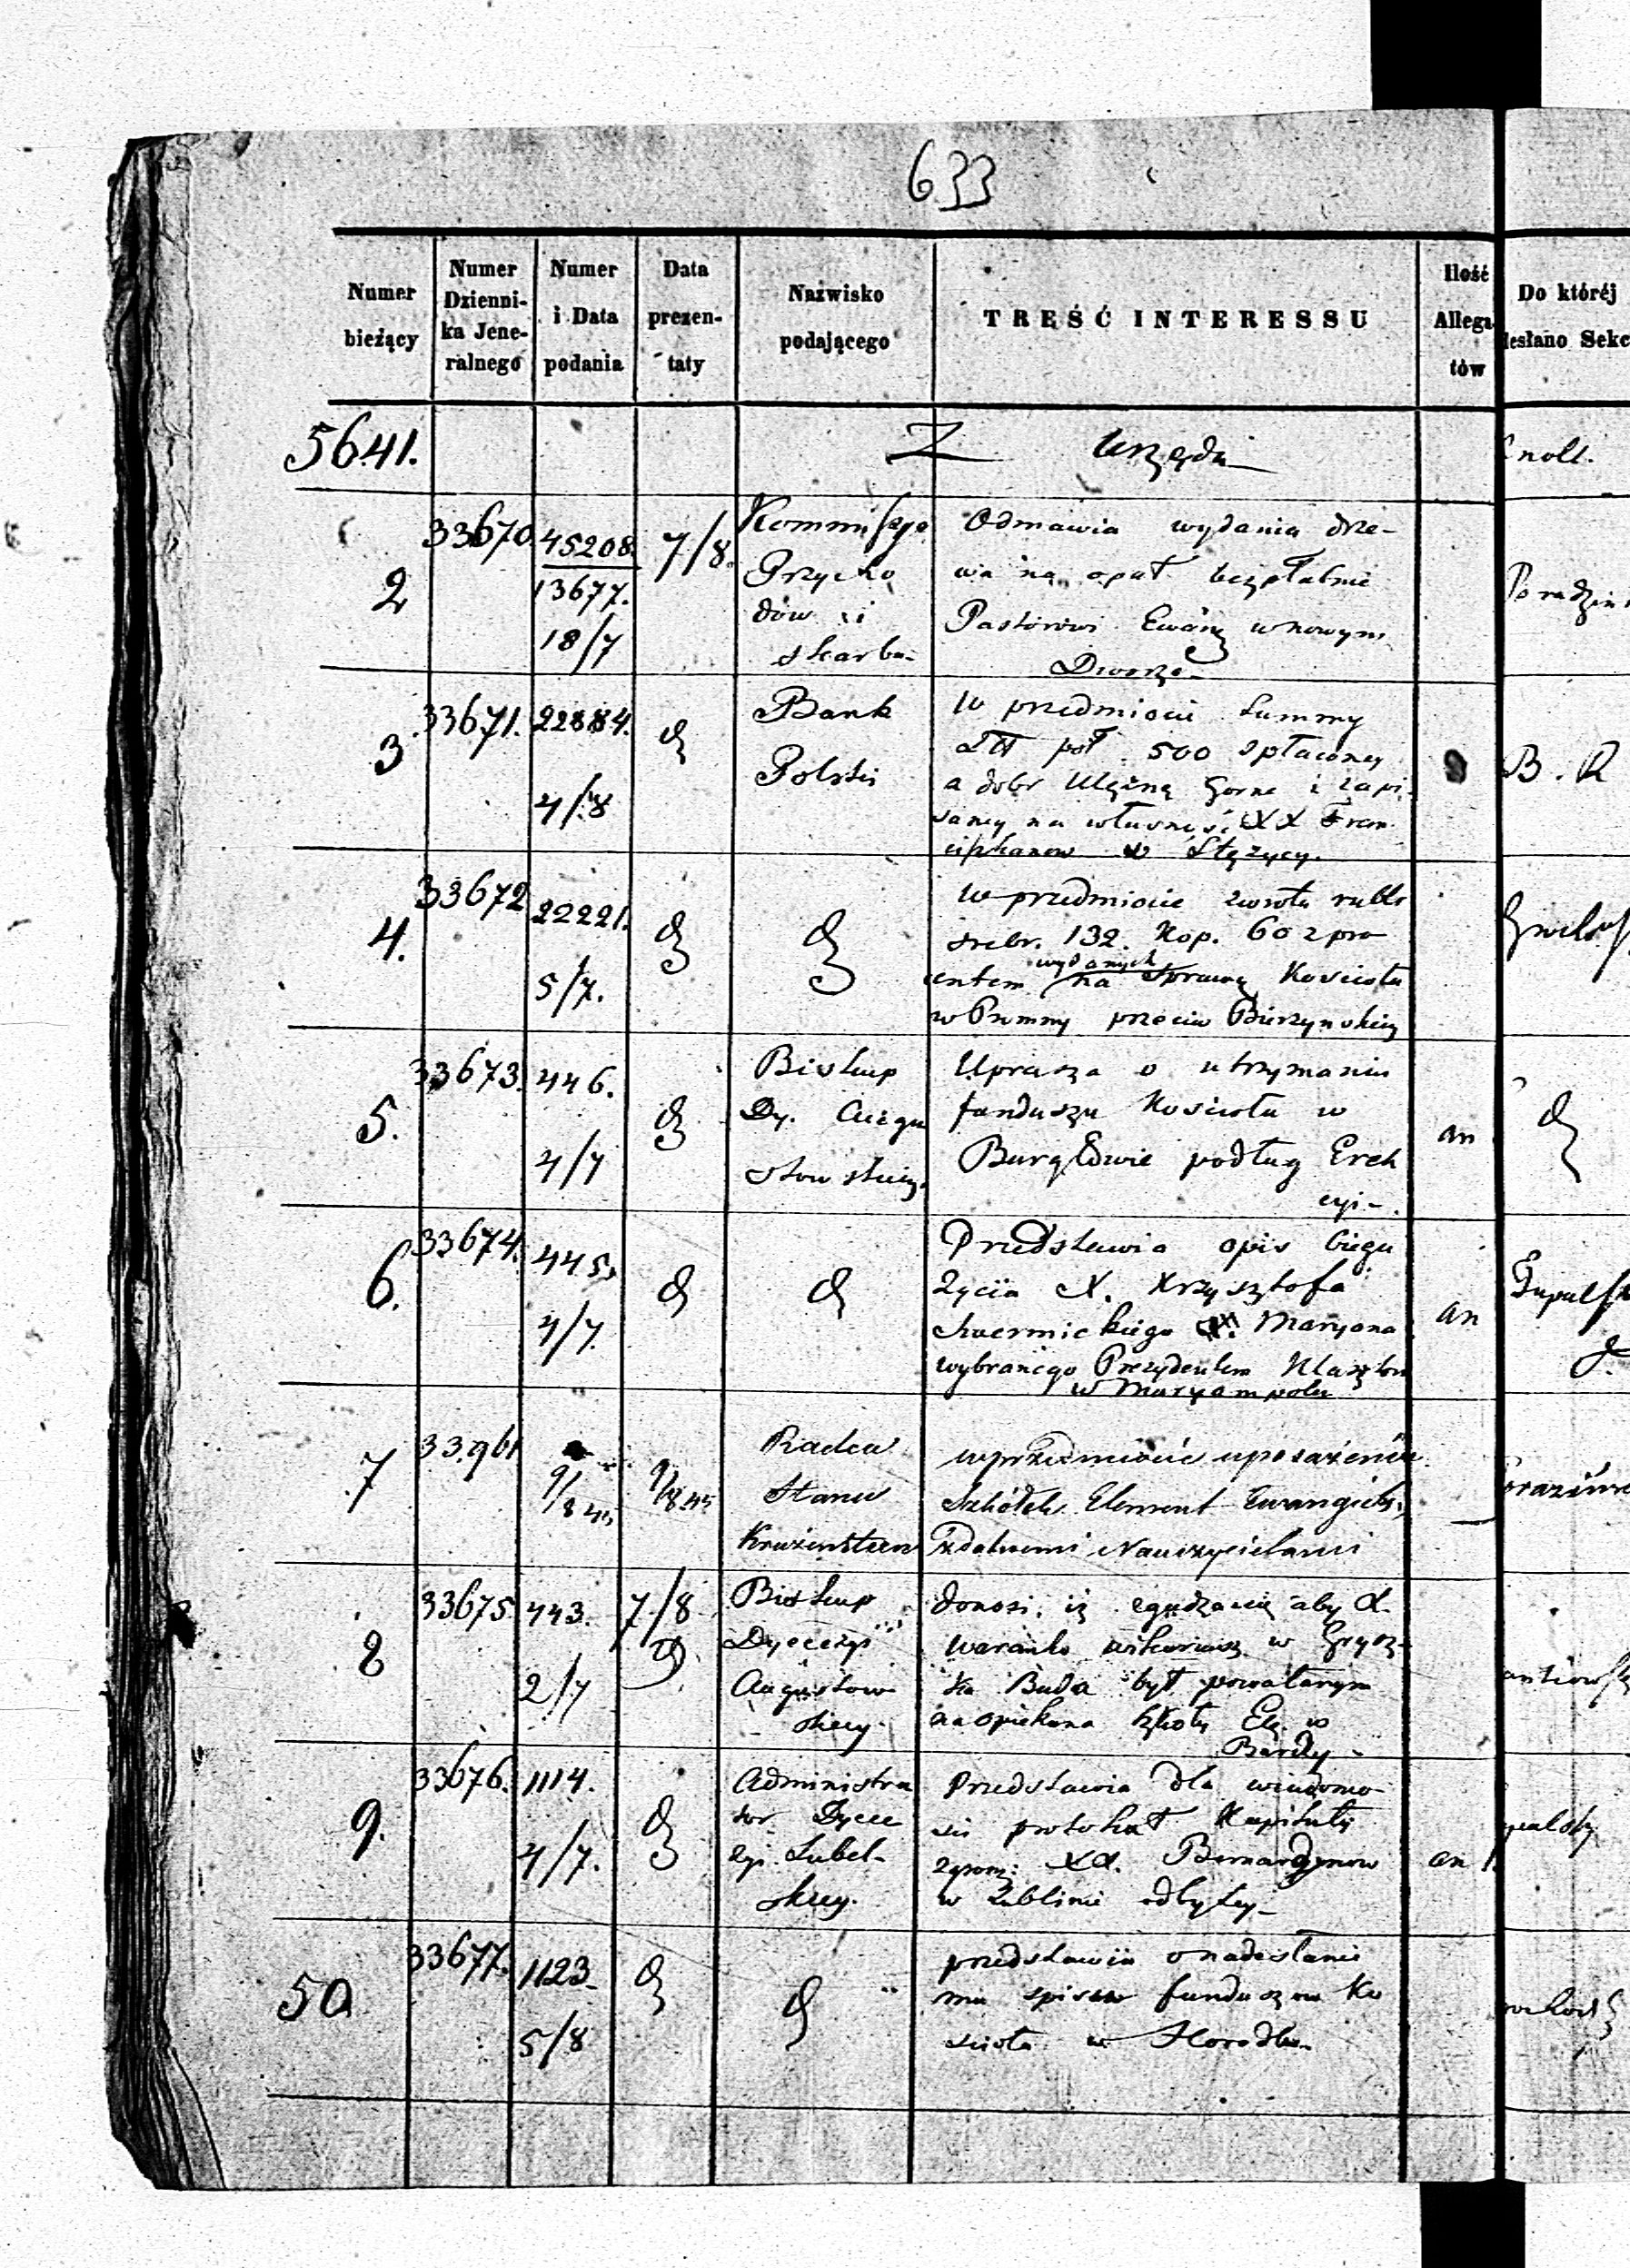 633
Numer bieżący
Numer Dzienni-ka Jene-ralnego
Numer i Data podania
Data prezen-taty
Nazwisko podającego
TREŚĆ INTERESSU
Ilość Allega tów
Do któréj
esłano Sekc
5641.
Z Urzędu
2
33670.
45208.
13677.
18/7
7/8.
Kommissya
Przycho
dów i
Skarbu
Odmawia wydania drze-
wa na opał bezpłatnie
Pastorowi Ewang w nowym
Dworze
3
33671.
22884.
4/8
Bank
Polski
W przedmiocie Summy
Zł pol 500 spłaconey
z dobr Ulężną Gorne i zapi
saney na własność XX Fran
ciszkanow w Stężycy.
B. R
4.
33672
22221.
5/7.
W przedmiocie zwrotu rubli
srebr. 132. Kop. 60 z pro
centem wydanych na sprawę Kosciola
przeciw
5.
33673.
446.
4/7
Biskup
Dy. Augu
stowskiey.
Uprasza o utrzymanie
funduszu Kosciola w
podług Erek
cyi-.
an
6.
33674.
445.
4/7.
Przedstawia opis biegu
życia X. Krzysztofa
X. Maryana
wybranego Prezydentem Klasztoru
w Maryampolu
an
7
33.961
9/8 45
9/8 45
Radca
Stanu
Kruzenstern
w przedmiocie uposażenia
Szkółek Element Ewangiels.
zdatnemi Nauczycielami
8
33675
443.
2/7
7/8
Biskup
Dyecezyi
Augustow
skiey.
donosi, iż zgadza się aby X.
w
Buda był powołanym
na opiekuna Szkoły El. w
9.
33676.
1114.
4/7.
Administra
tor Dyece
zyi Lubel-
skiey.
Przedstawia dla wiadomo-
sci protokół Kapituły
zgrom: XX. Bernardynow
w Lublinie odbytey-
an 1.
50
33677.
1123.
5/8
przedstawia o nadesłanie
mu spisow funduszow Ko
sciola w Horodle.